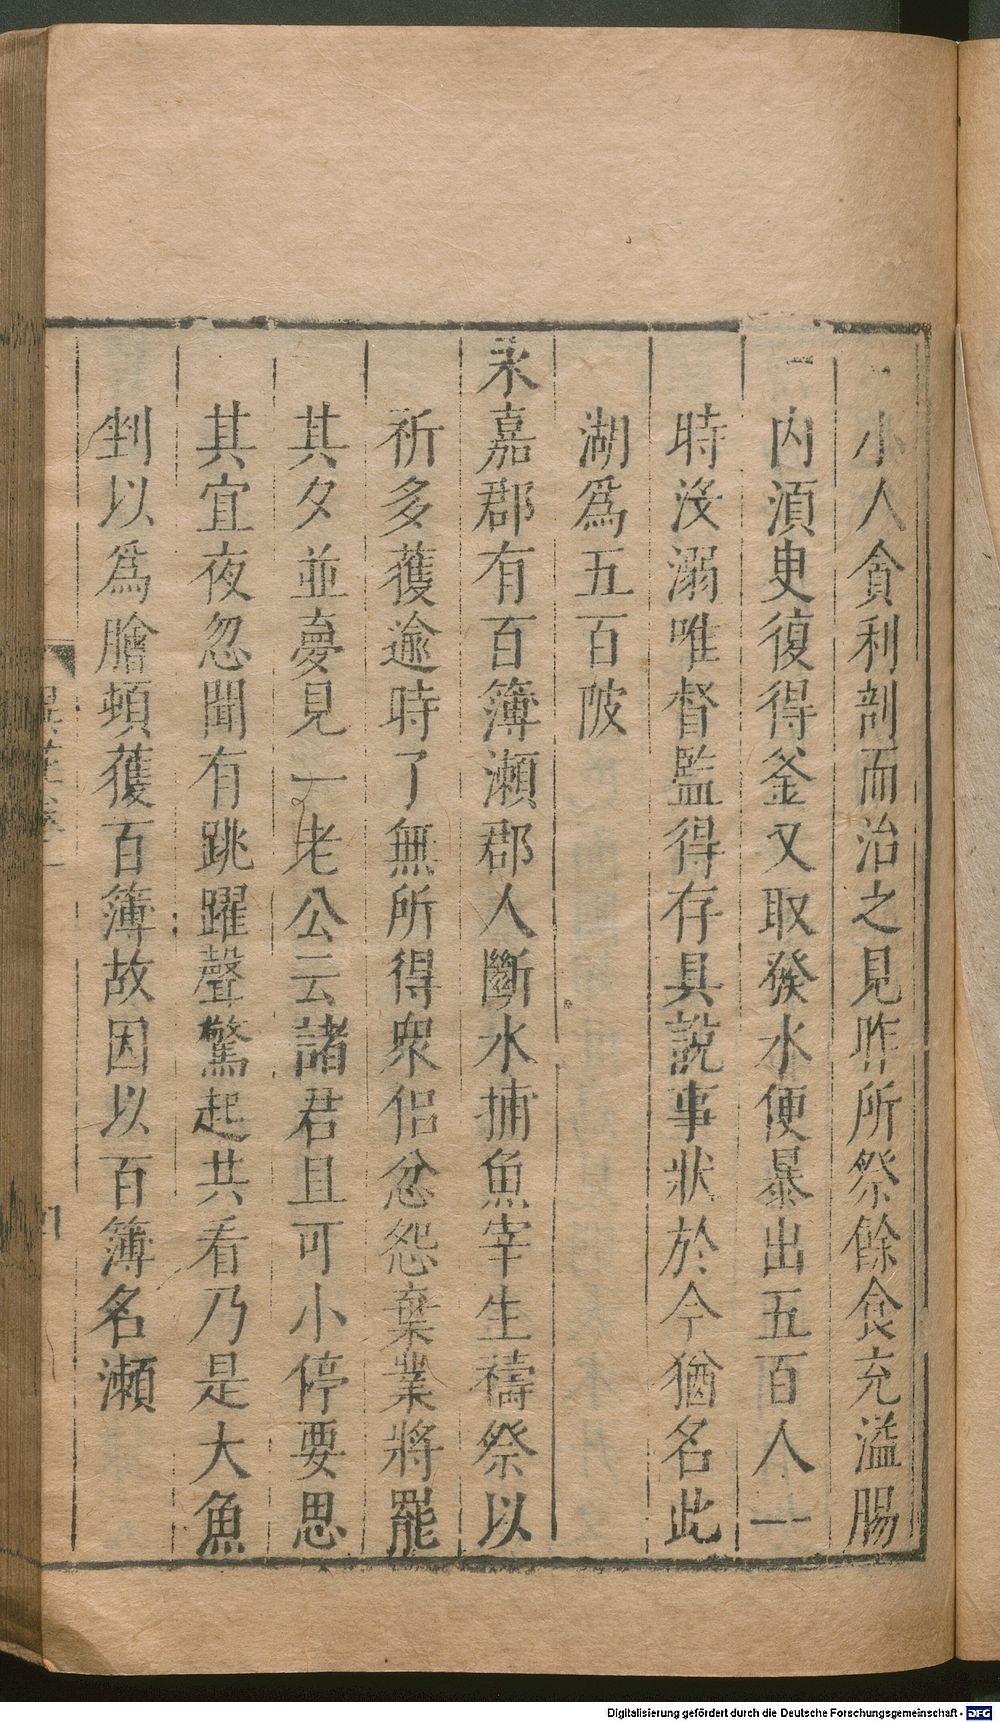 小人貪利剖而治之見昨所祭餘食充溢腸
內湏臾復得釜又取發水便暴出五百人一
時沒溺唯督監得存具說事狀於今猶名此
湖爲五百陂
永嘉郡有百簿瀨郡人斷水捕魚宰生禱祭以
祈多獲逾時了無所得衆侶忿怨棄業將罷
其夕並夢見一老公云諸君且可小停要思
其宜夜忽聞有跳躍聲驚起共看乃是大魚
剉以爲膾頓獲百簿故因以百簿名瀨
Digitalisierung gefördert durch die Deutsche Forschungsgemeinschaft - DFG